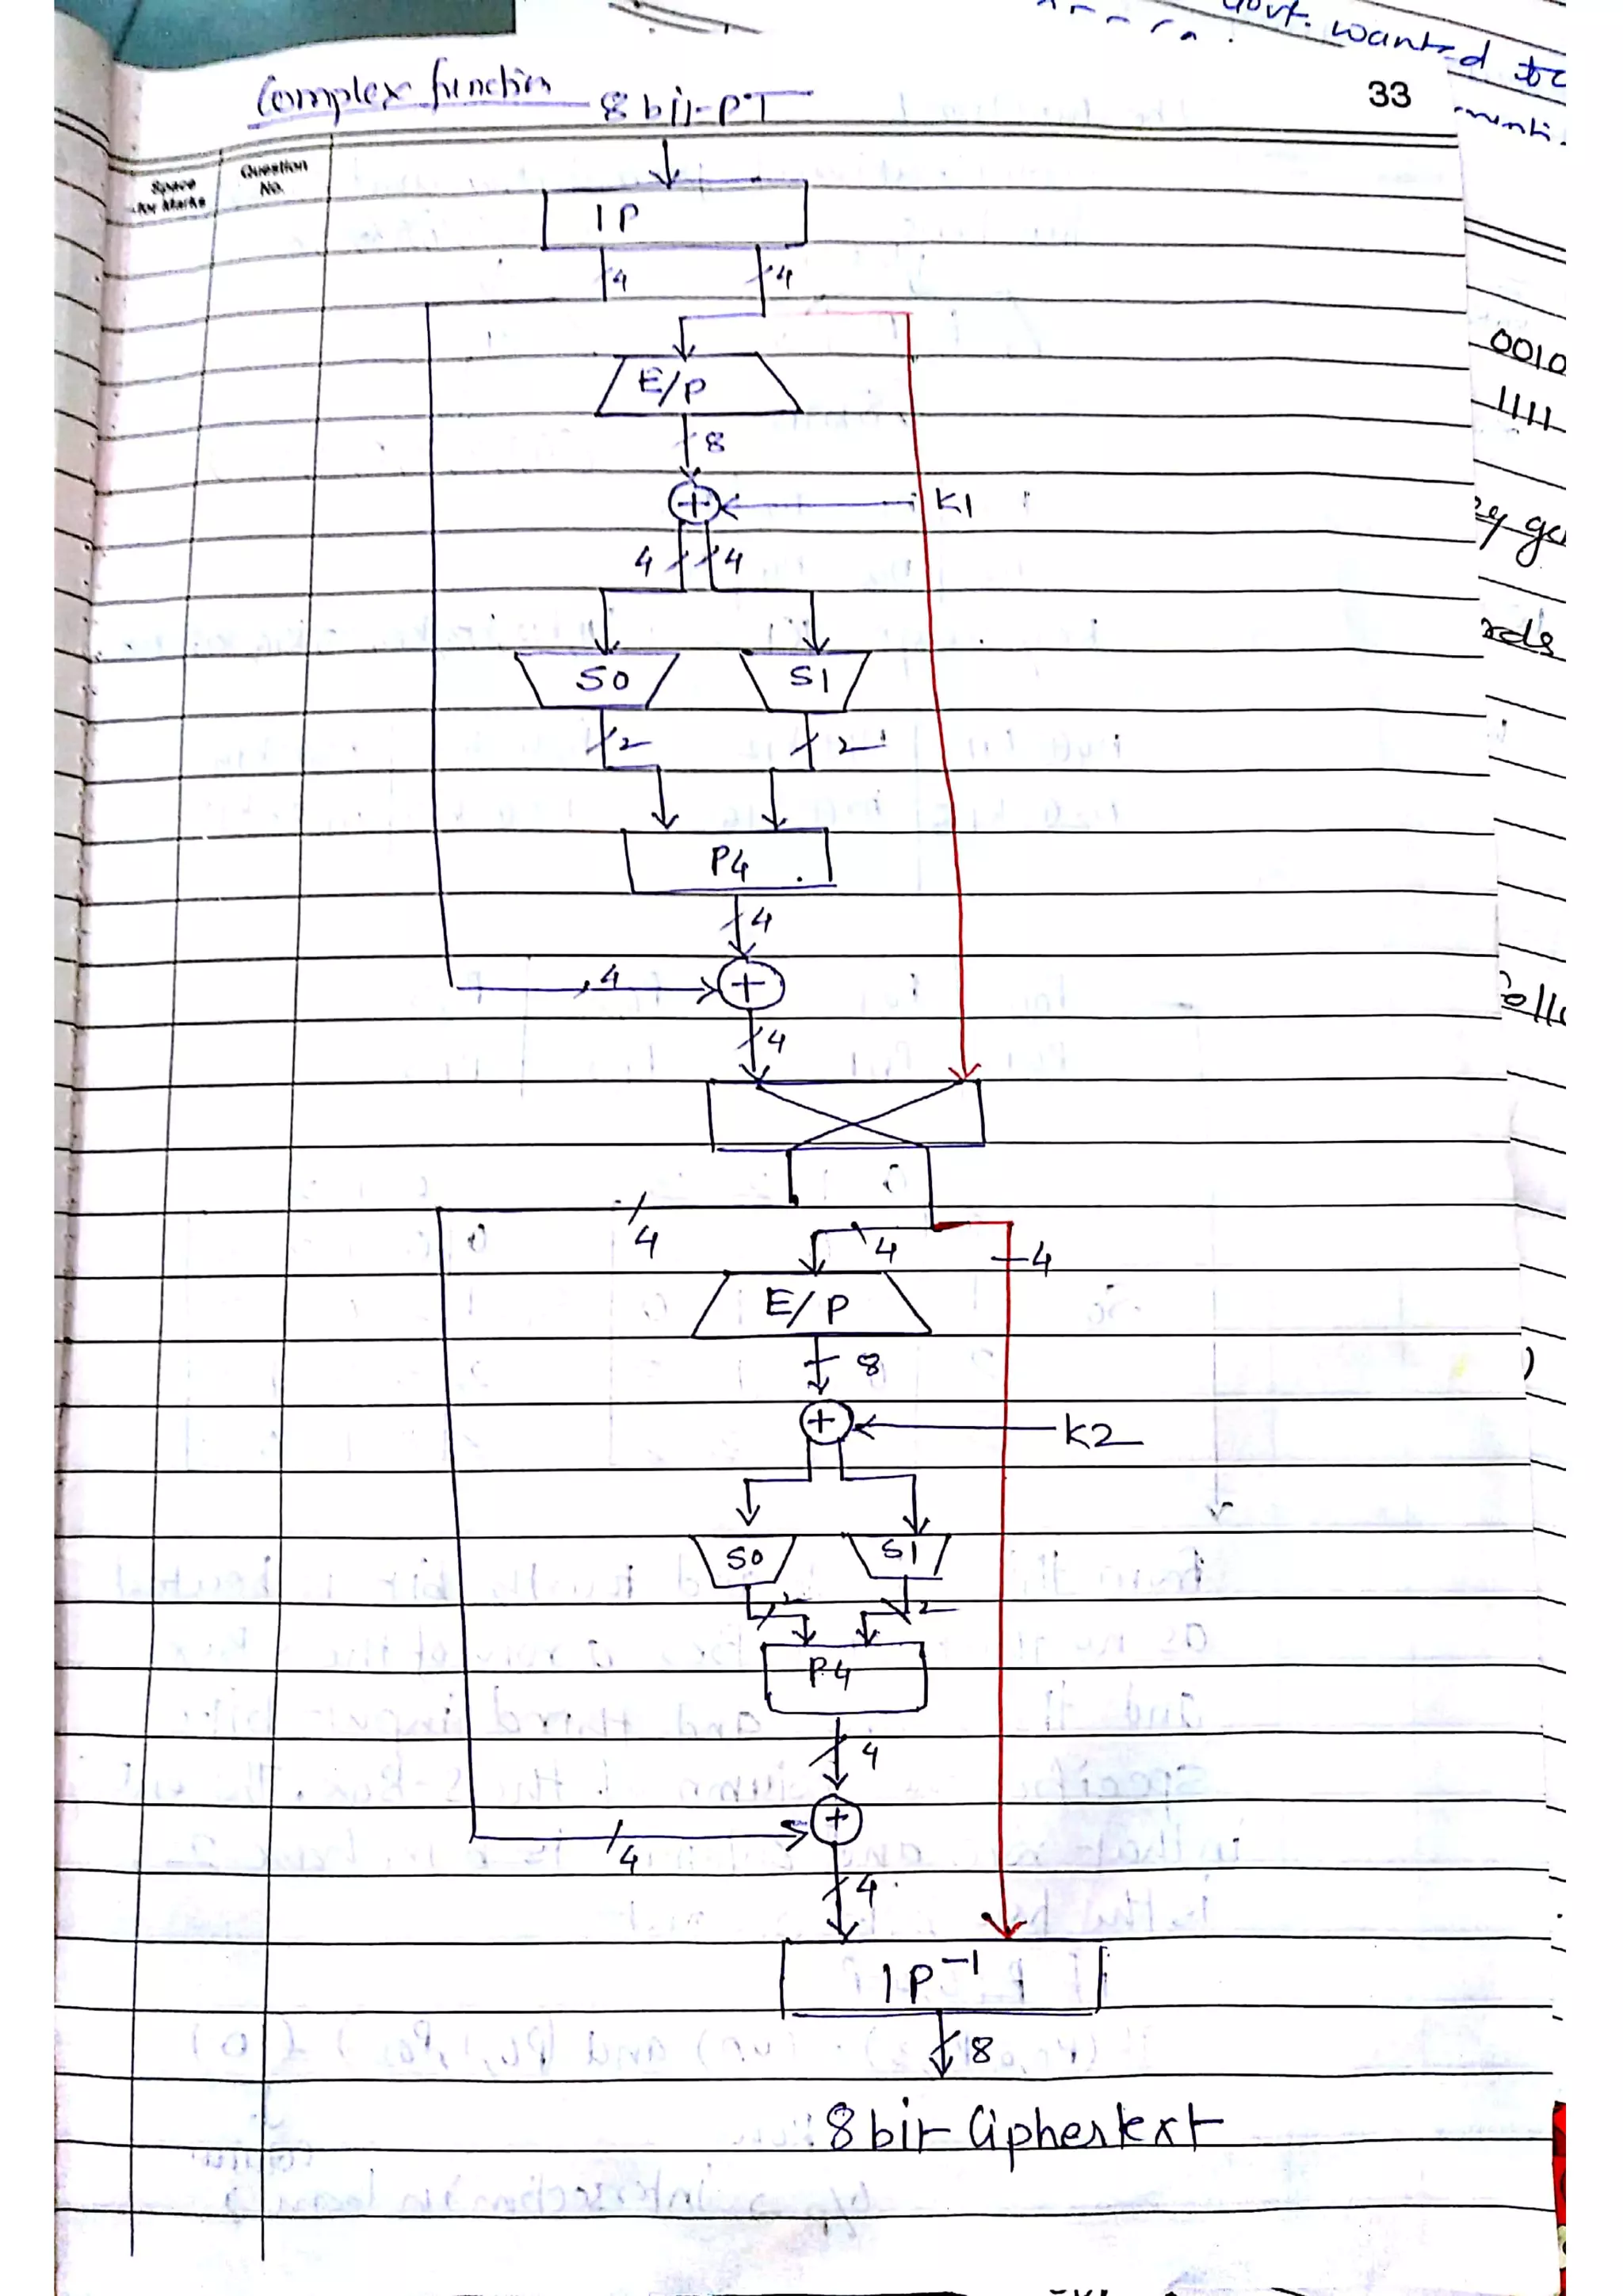 Govt. wanted to
Complex function 8 bit-PT
33
Space for Marks
Question No.
IP
4 4
0010
E/P
1111
8
K1
4 4
S0 S1
2 2
P4
4
4
4
4
4
4
E/P
8
K2
S0 S1
2 2
P4
4
4
4
IP⁻¹
8
8 bit Ciphertext